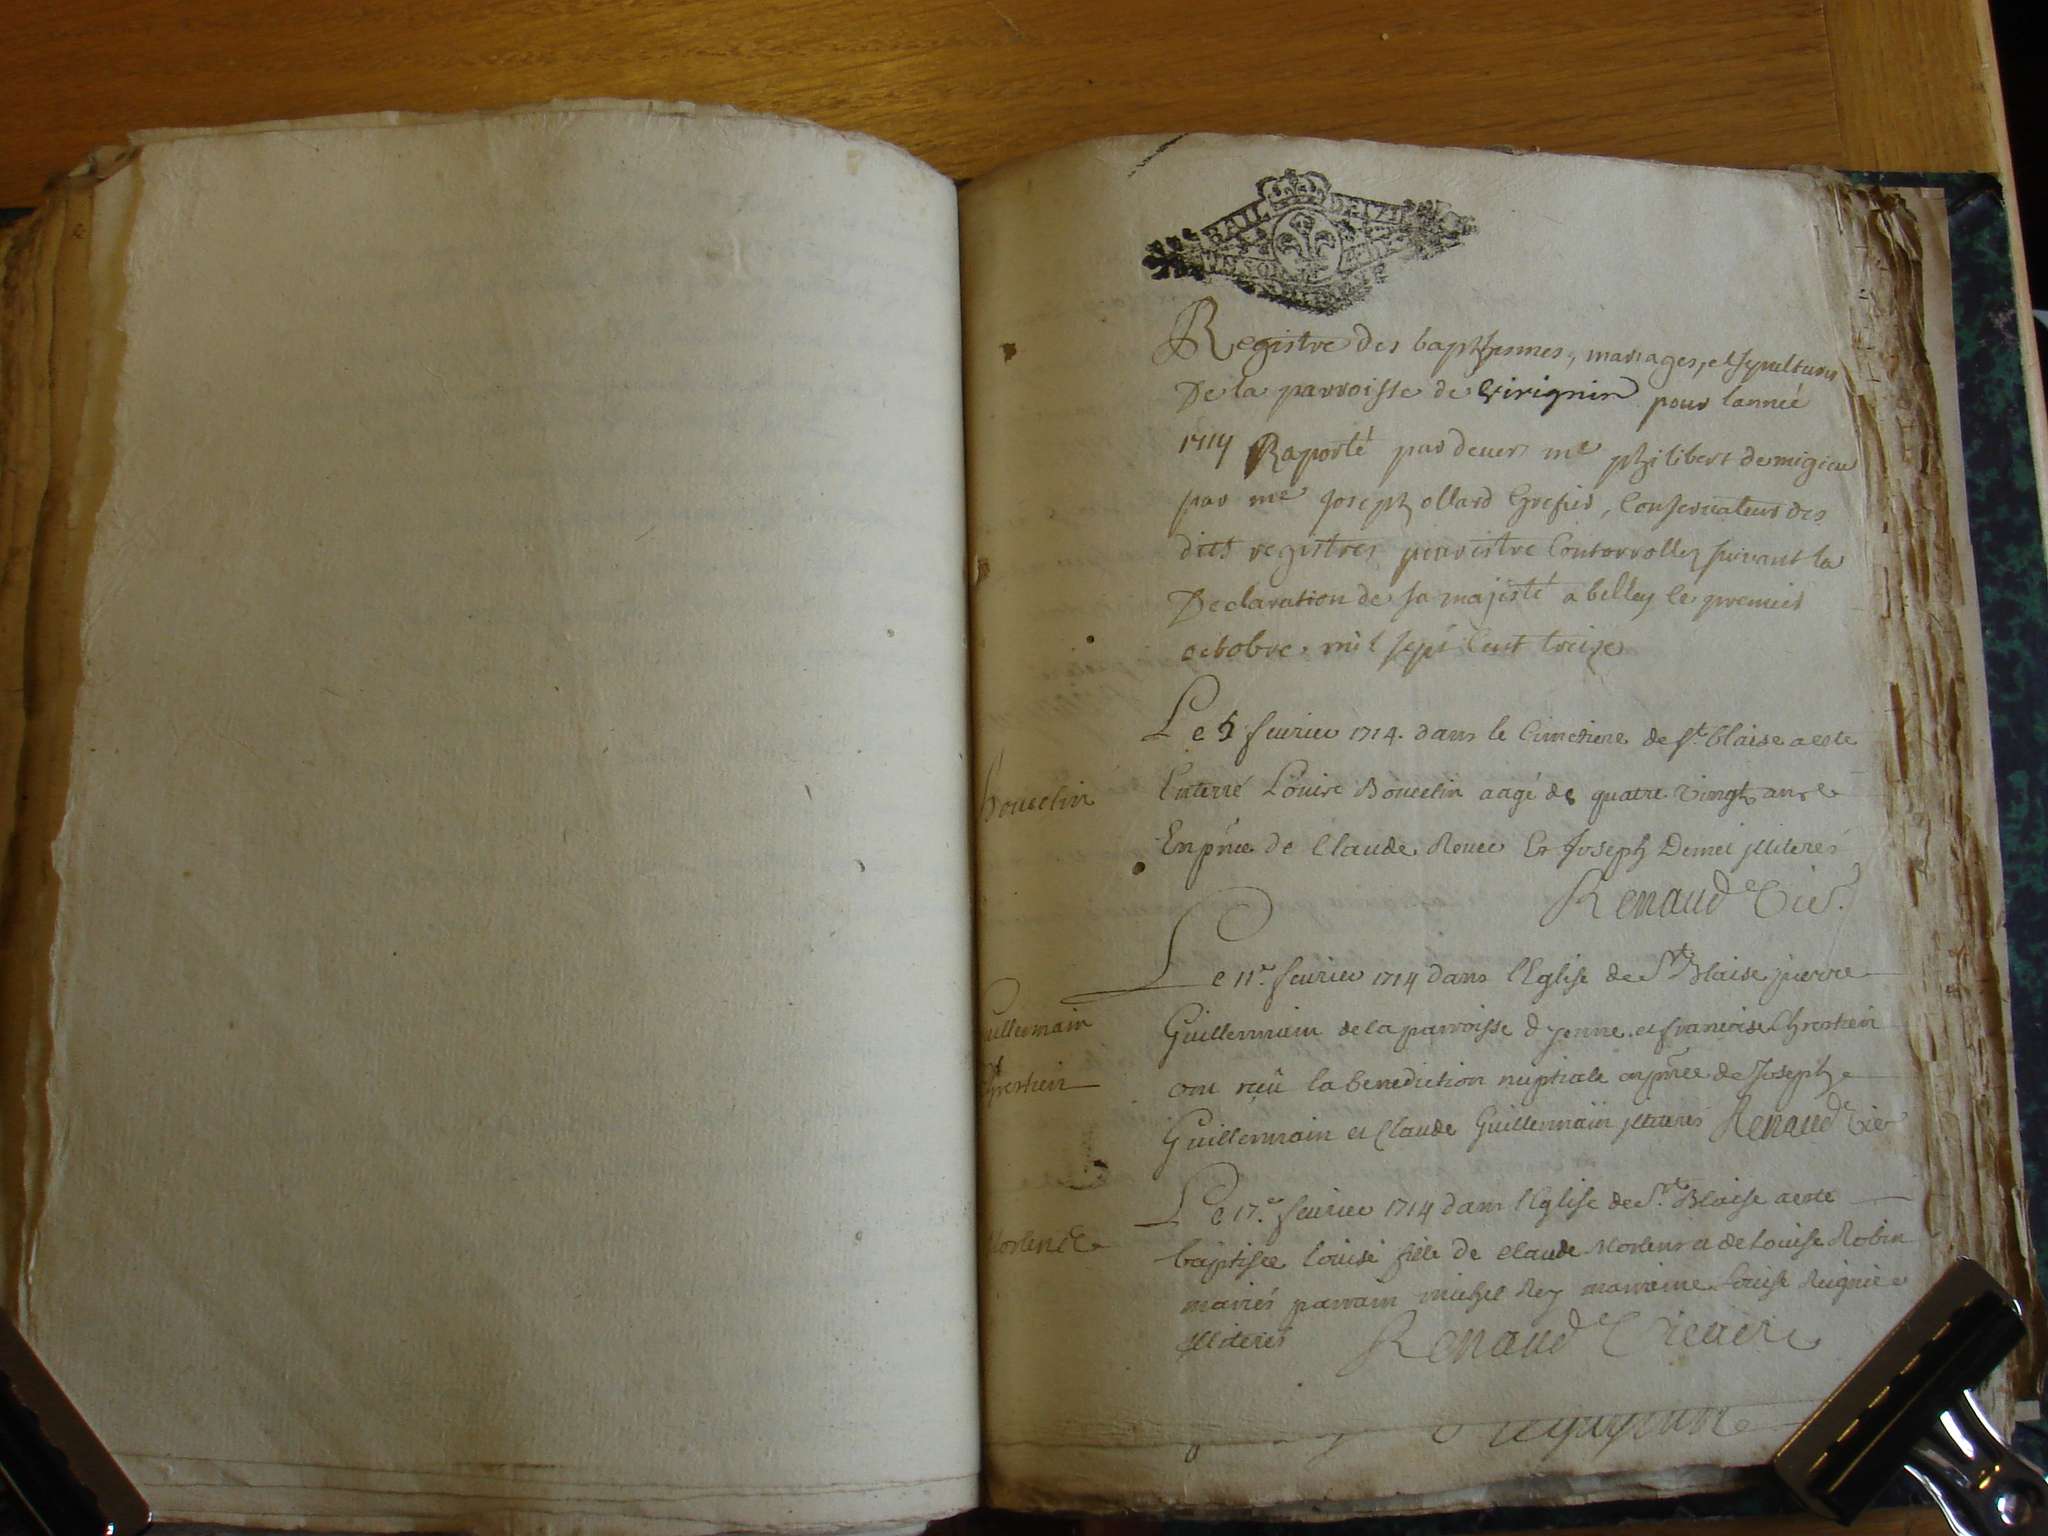 Registre des baptesmes, mariages, et sepultures
De la parroisse de Virignin pour lannée
1714 Raporté pardeuers me philibert demigieu
par me Joseph ollard Grefier, Conseruateur des
dits registres pour estre Contorrollez suiuant la
Declaration de sa majesté a belley le premier
octobre mil sept Cent treize
Le 5 feurier 1714. dans le Cimetiere de st blaise a esté
bouuelin
Enterré Louise Bouuelin aagé de quatre vingt ans
En pnce de Claude Reuee Et Joseph Demei jlliteres
Renaud vic.
Le 11e. feurier 1714 dans l'Eglise de St Blaise pierre
Guillermain
Guillermain de la parroisse d yenne et francoise Chrestien
et
Chrestien
ont reçü la benediction nuptiale en pnce de Joseph
Guillermain et Claude Guillermain jlliteres Renaud vic
Le 17.e feurier 1714 dans l'Eglise de St. Blaise a esté
Morlend
baptisee louise fille de claude Morlend et de louise Robin
mariés parrain michel Rey marraine louise
jlliteres Renaud vicaire